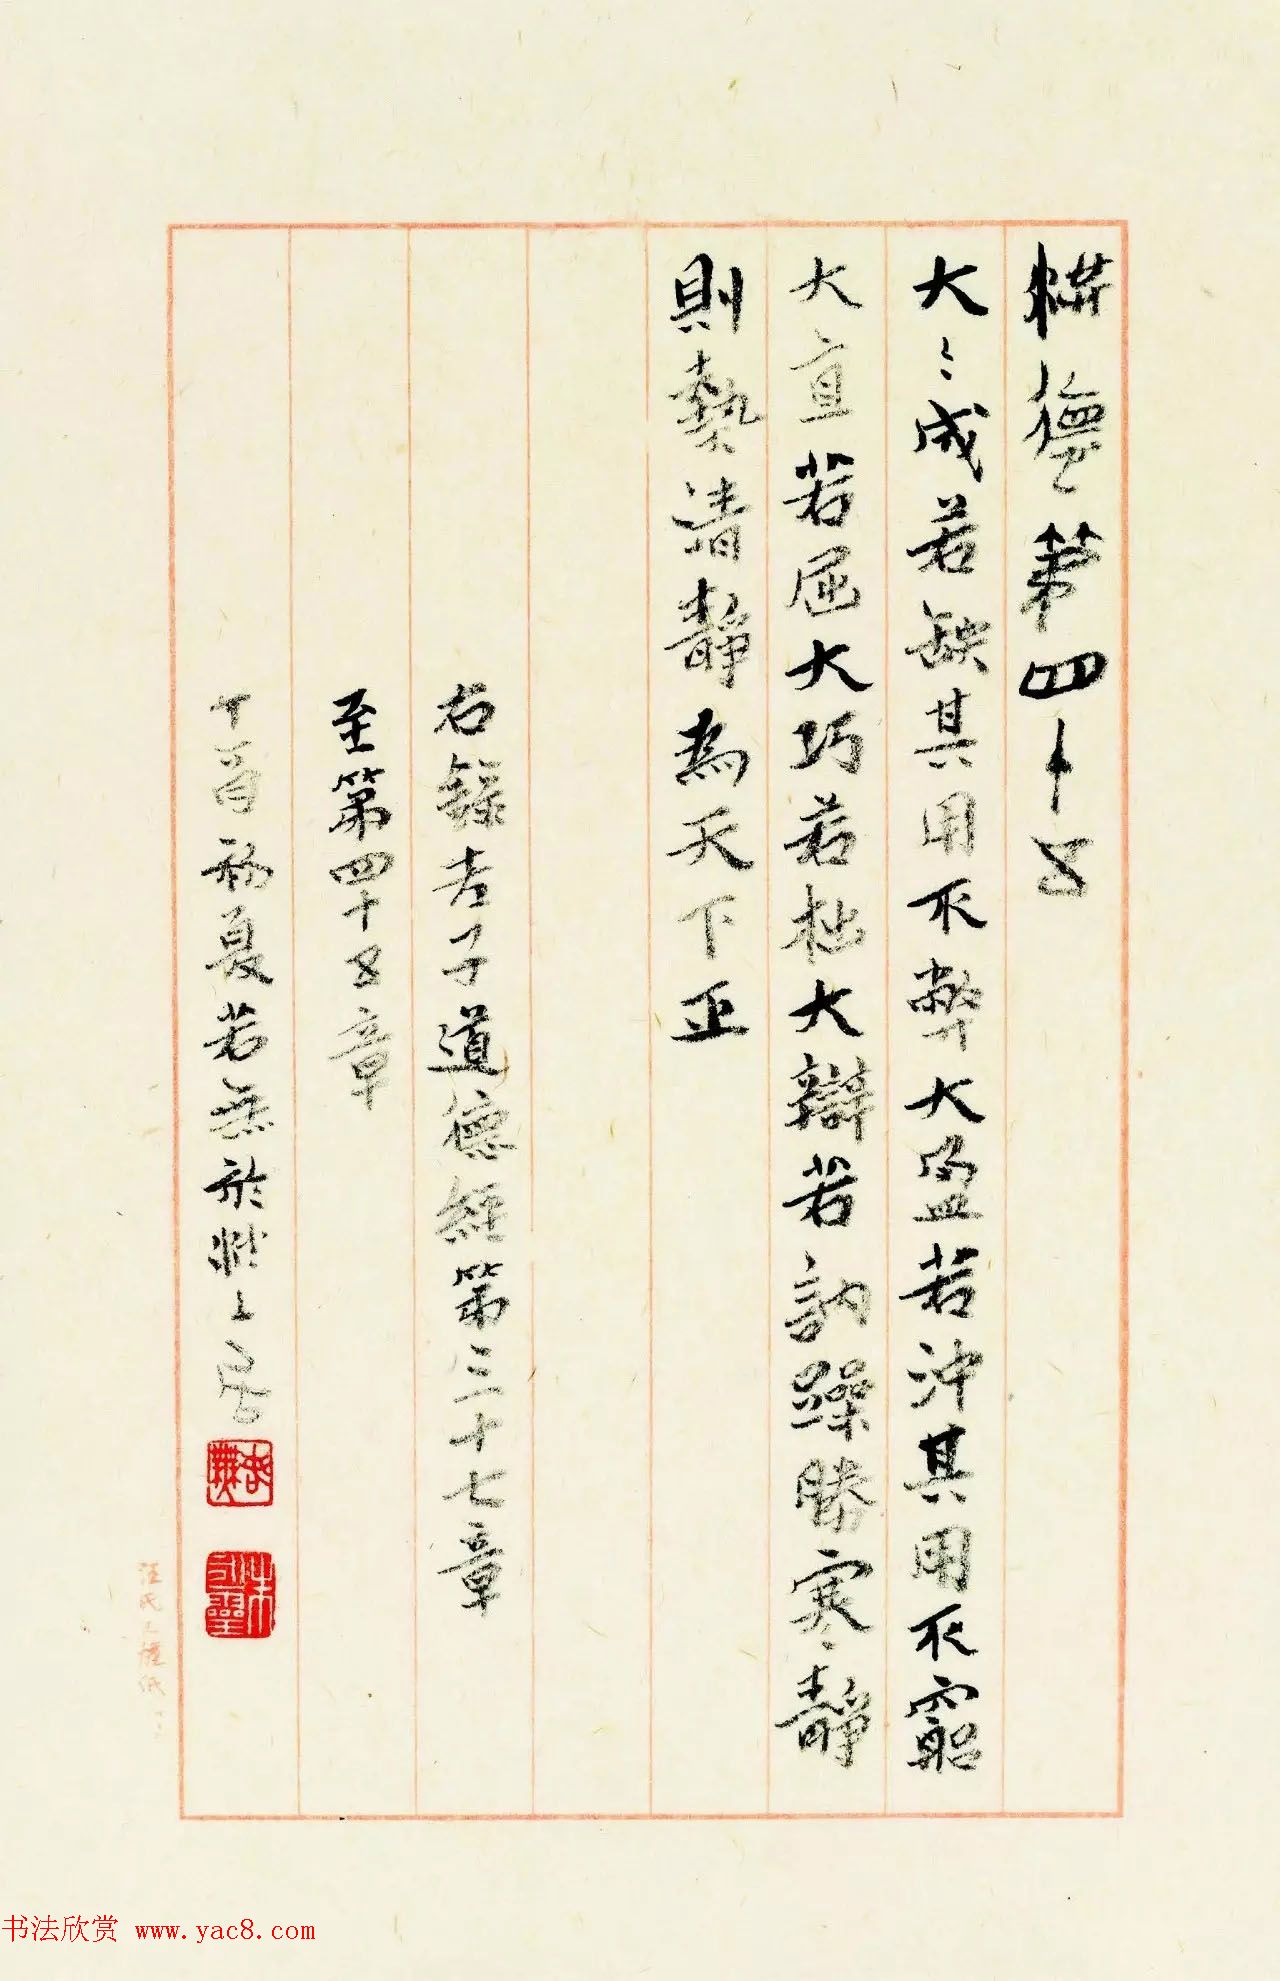 洪德第四十五
大〻成若缺其用不弊大盈若沖其用不窮
大直若屈大巧若拙大辯若訥躁勝寒靜
則熱清靜為天下正
右錄老子道德經第三十七章
至第四十五章
丁酉初夏若無於
若無
书法欣赏 www.yac8.com